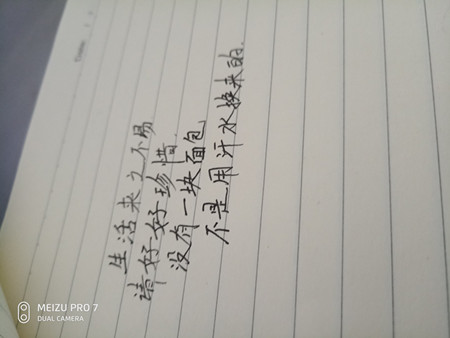 生活来之不易
请好好珍惜.
没有一块面包
不是用汗水换来的.
MEIZU PRO 7
DUAL CAMERA